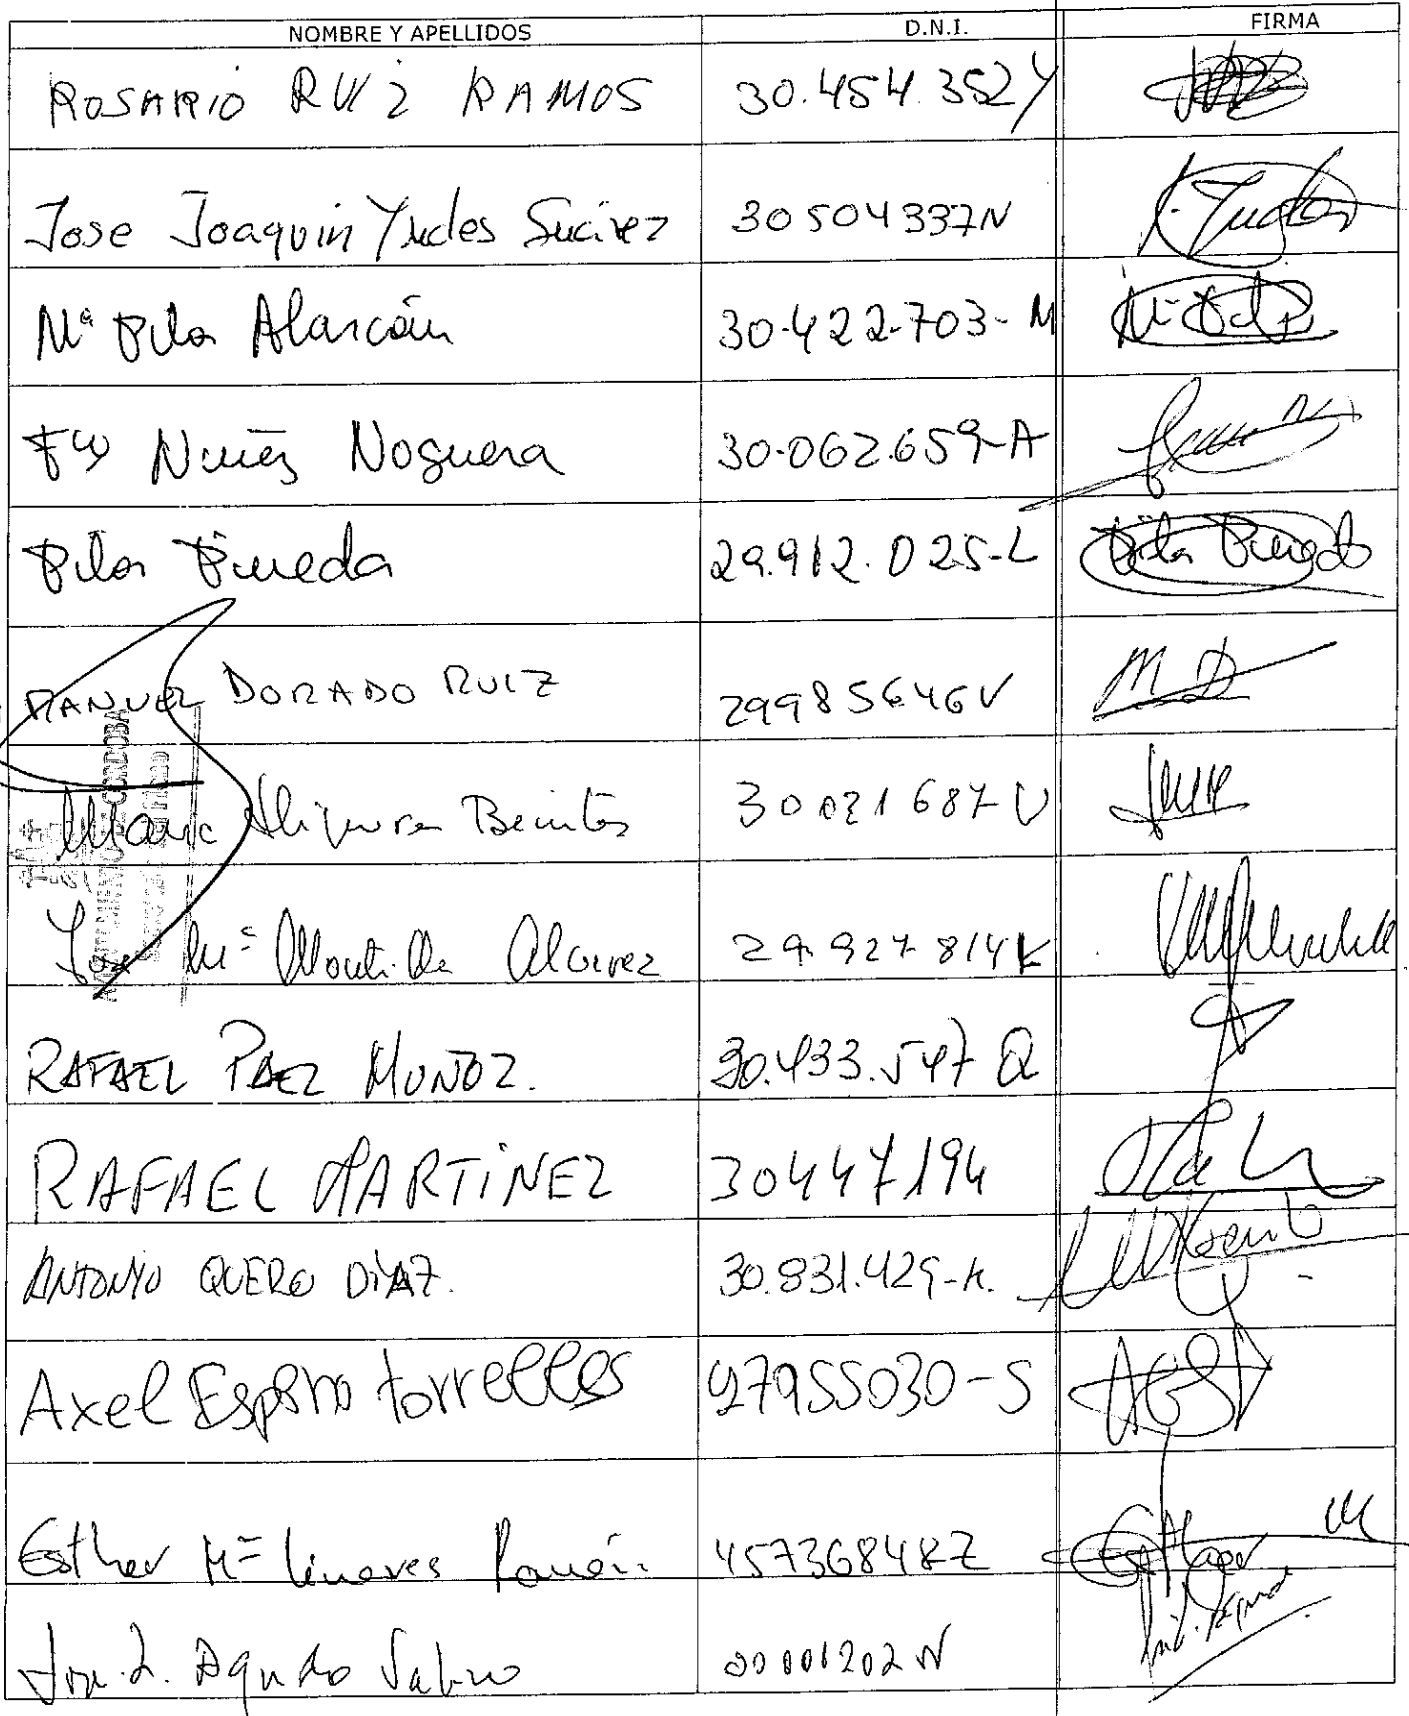 NOMBRE Y APELLIDOS D.N.I. FIRMA
ROSARIO RUIZ RAMOS 30.454.352Y
Jose Joaquin Yudes Suárez 30504337N
Mª Pilar Alarcón 30-422-703-M
Fco Núñez Noguera 30-062.659-A
Pilar Pineda 29.912.025-L Pilar Pineda
MANUEL DORADO RUIZ 29985646V M D
Maria Benitez 30021687V
CORDOBA
Jose Mª Montilla Alvarez 29.927814K
RAFAEL PAEZ MUÑOZ. 30.433.547 Q
RAFAEL MARTÍNEZ 30447194
ANTONIO QUERO DÍAZ. 30.831.429-K.
Axel Espino torrelles 47955030-S
Esther Mª Linares Román 45736848Z Esther
Agudo 00001202N